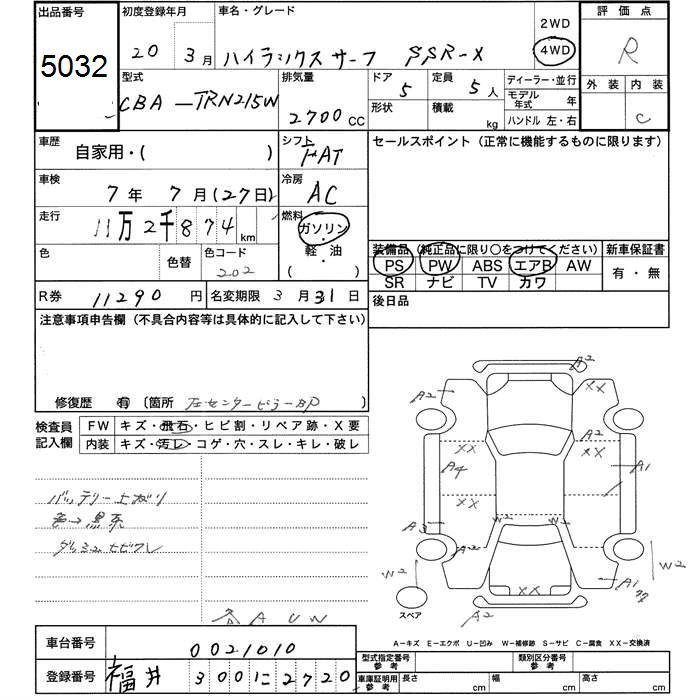 出品番号
5032
初度登録年月
20年 3月
車名・グレード
ハイラックスサーフ SSR-X
2WD
4WD
評価点
R
外装 内装
C
型式
CBA-TRN215W
排気量
2700 CC
ドア
5
形状
定員
5人
積載
kg
ディーラー・並行
モデル年式 年
ハンドル 左・右
車歴
自家用・( )
シフト
FAT
セールスポイント (正常に機能するものに限ります)
車検
7年 7月(27日)
冷房
AC
走行
11万2千874 km
燃料
ガソリン
軽・油
( )
色
色替
色コード
202
装備品 (純正品に限り○をつけてください)
PS PW ABS エアB AW
SR ナビ TV カワ
新車保証書
有・無
R券 11290円
名変期限 3月31日
後日品
注意事項申告欄 (不具合内容等は具体的に記入して下さい)
修復歴 有 〔箇所 左センターピラーBP 〕
検査員記入欄
FW キズ・飛石・ヒビ割・リペア跡・X要
内装 キズ・汚レ・コゲ・穴・スレ・キレ・破レ
バッテリー上がり
色→黒系
ダッシュヒビワレ
各AUW
A2
A2
XX
A2
XX
XX
A4
A1
XX
W2
W2
A3
A2
W2
W2
XX
A1
A2
スペア
A-キズ E-エクボ U-凹み W-補修跡 S-サビ C-腐食 XX-交換済
車台番号 0021010
登録番号 福井 300に2720
型式指定番号 参考
類別区分番号 参考
車庫証明用 参考
長さ cm
幅 cm
高さ cm